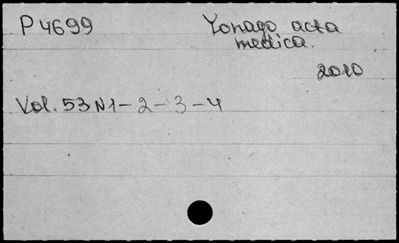 P 4699
Yonago acta
medica.
2010
Vol. 53 N1-2-3-4